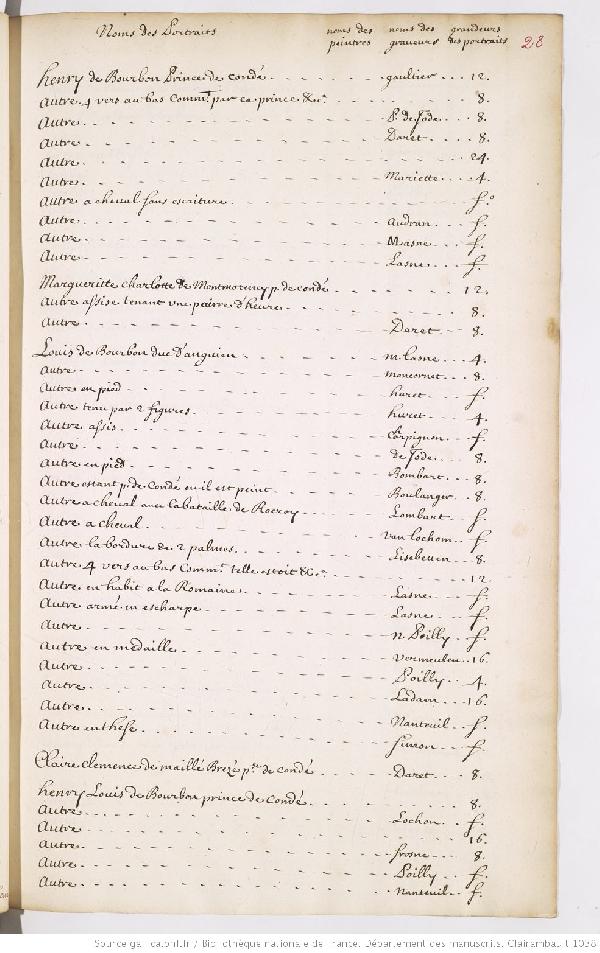 Noms des Portraits noms des peintres noms des graveurs grandeurs des portraits 28
henry de Bourbon Prince de Condé gaultier 12.
Autre 4 vers au bas Commt. par ce prince &c. 8.
Autre P. de Jode 8.
Autre Daret 8.
Autre 24.
Autre Mariette 4.
Autre a cheval sans escriture f.o
Autre Audran f.
Autre Masne f.
Autre Lasne f.
Margueritte charlotte de Montmorency p. de condé 12.
Autre assise tenant une paire d'heures 8.
Autre Daret 8.
Louis de Bourbon duc d'anguien m. lasne 4.
Autre moncornet 8.
Autre en pied huret f.
Autre tenu par 2 figures huret 4.
Autre assis Carpignon f.
Autre de Jode 8.
Autre en pied Bombart 8.
Autre estant p. de Condé ou il est peint Boulanger 8.
Autre a cheval avec la bataille de Rocroy Lombart f.
Autre a cheval van lochom f.
Autre la bordure de 2 palmes Lisebeten 8.
Autre 4 vers au bas Commt. telle estoit &c. 12.
Autre en habit a la Romaine Lasne f.
Autre armé en escharpe Lasne f.
Autre n. Poilly f.
Autre en medaille Vermeulen 16.
Autre Poilly 4.
Autre Ladam 16.
Autre Nanteuil f.
Autre en these simon f.
Claire clemence de maillé Brezé p.se de condé Daret 8.
henry Louis de Bourbon prince de Condé 8.
Autre Lochon f.
Autre 16.
Autre frosne 8.
Autre Poilly f.
Autre Nanteuil f.
Source gallica.bnf.fr / Bibliothèque nationale de France. Département des manuscrits. Clairambault 1038